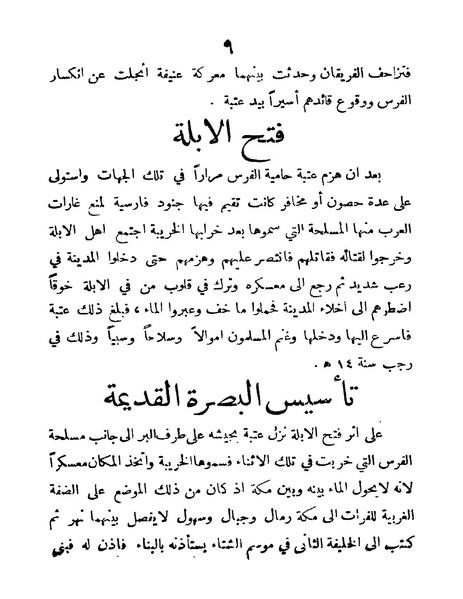 ٩
فتزاحف الفريقان وحدثت بينهما معركة عنيفة أنجلت عن انكسار
الفرس ووقوع قائدهم أسيراً بيد عتبة .
فتح الابلة
بعد ان هزم عتبة حامية الفرس مراراً في تلك الجهات واستولى
على عدة حصون أو مخافر كانت تقيم فيها جنود فارسية لمنع غارات
العرب منها المسلحة التي سموها بعد خرابها الخريبة اجتمع اهل الابلة
وخرجوا لقتاله فقاتلهم فانتصر عليهم وهزمهم حتى دخلوا المدينة في
رعب شديد ثم رجع الى معسكره وترك في قلوب من في الابلة خوفاً
اضطرهم الى اخلاء المدينة فحملوا ما خف وعبروا الماء ، فبلغ ذلك عتبة
فاسرع اليها ودخلها وغنم المسلمون اموالاً وسلاحاً وسبياً وذلك في
رجب سنة ١٤ ه .
تأسيس البصرة القديمة
على اثر فتح الابلة نزل عتبة بجيشه على طرف البر الى جانب مسلحة
الفرس التي خربت في تلك الاثناء فسموها الخريبة واتخذ المكان معسكراً
لانه لايحول الماء بينه وبين مكة اذ كان من ذلك الموضع على الضفة
الغربية للفرات الى مكة رمال وجبال وسهول لايفصل بينهما نهر ثم
كتب الى الخليفة الثانى في موسم الشتاء يستأذنه بالبناء فاذن له فبنى